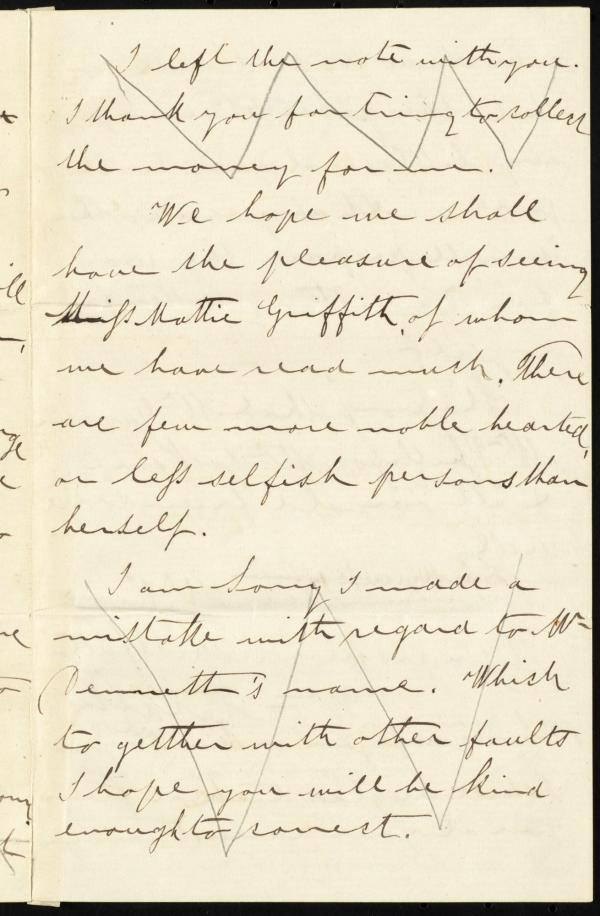 I left the note with you.
I thank you for tring to collect
the money for me.
We hope we shall
have the pleasure of seeing
Miss Mattie Griffith, of whom
we have read much. There
are few more noble hearted,
or less selfish persons than
herself.
I am Sorry I made a
mistake with regard to Mr
Dennett's name. Which
to getther with other faults
I hope you will be kind
enough to correct.